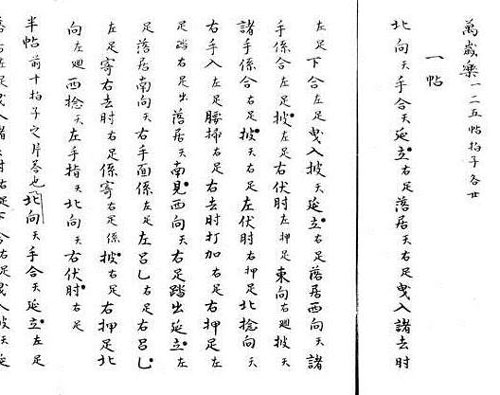 萬歳樂一二五帖拍子各廿
一帖
北向天手合天延立右足落居天右足曳入諸去肘
左足下合左足曳入披天延立右足落居西向天諸
手係合左足披左足右伏肘左押足東向右廻披天
諸手係合右足披天右足左伏肘右押足北捻向天
右手入左足腰掃右足右去肘打加右足右押足左
足踏右足出落居天南見西向天右足踏出延立左
足落居南向天右手面係左足左呂乚右足右呂乚
左足寄右去肘右足係寄右足係披右足右押足北
向左廻西捻天左手指天北向天右伏肘右足
半帖前十拍子之片荅也北向天手合天延立左足
落居左足曳入諸去肘右足下合右足曳入披天延